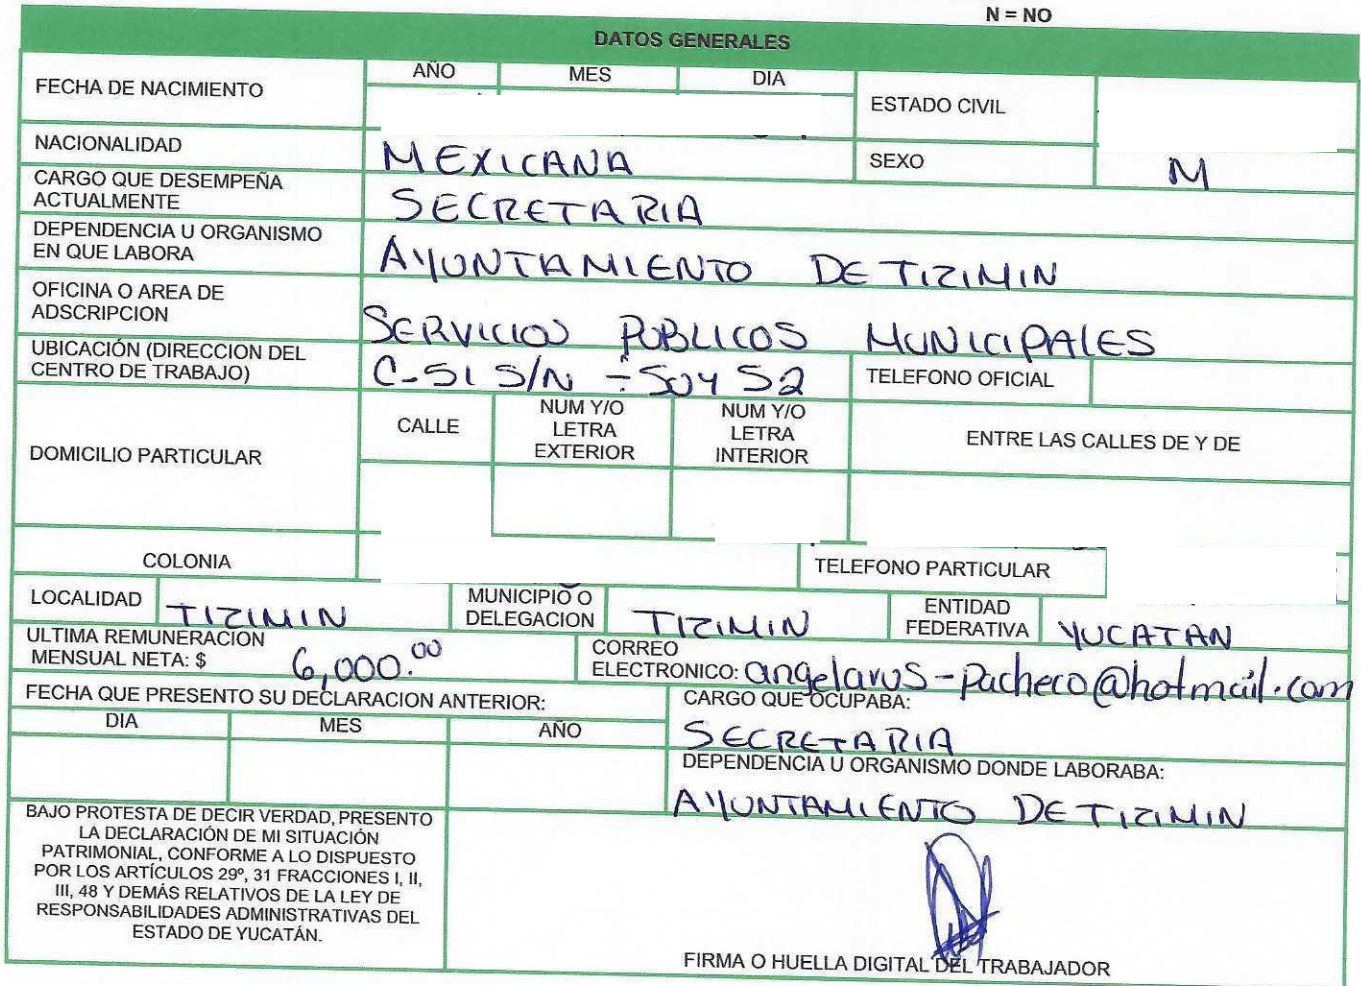 N = NO
DATOS GENERALES
FECHA DE NACIMIENTO
AÑO MES DIA
ESTADO CIVIL
NACIONALIDAD MEXICANA SEXO M
CARGO QUE DESEMPEÑA
ACTUALMENTE SECRETARIA
DEPENDENCIA U ORGANISMO
EN QUE LABORA AYUNTAMIENTO DE TIZIMIN
OFICINA O AREA DE
ADSCRIPCION SERVICIOS PUBLICOS MUNICIPALES
UBICACIÓN (DIRECCION DEL
CENTRO DE TRABAJO) C-51 S/N 50 Y 52 TELEFONO OFICIAL
DOMICILIO PARTICULAR
CALLE
NUM Y/O
LETRA
EXTERIOR
NUM Y/O
LETRA
INTERIOR
ENTRE LAS CALLES DE Y DE
COLONIA TELEFONO PARTICULAR
LOCALIDAD TIZIMIN
MUNICIPIO O
DELEGACION TIZIMIN
ENTIDAD
FEDERATIVA YUCATAN
ULTIMA REMUNERACION
MENSUAL NETA: $ 6,000.00
CORREO
ELECTRONICO: @hotmail.com
FECHA QUE PRESENTO SU DECLARACION ANTERIOR:
DIA MES AÑO
CARGO QUE OCUPABA:
SECRETARIA
DEPENDENCIA U ORGANISMO DONDE LABORABA:
AYUNTAMIENTO DE TIZIMIN
BAJO PROTESTA DE DECIR VERDAD, PRESENTO
LA DECLARACIÓN DE MI SITUACIÓN
PATRIMONIAL, CONFORME A LO DISPUESTO
POR LOS ARTÍCULOS 29º, 31 FRACCIONES I, II,
III, 48 Y DEMÁS RELATIVOS DE LA LEY DE
RESPONSABILIDADES ADMINISTRATIVAS DEL
ESTADO DE YUCATÁN.
FIRMA O HUELLA DIGITAL DEL TRABAJADOR